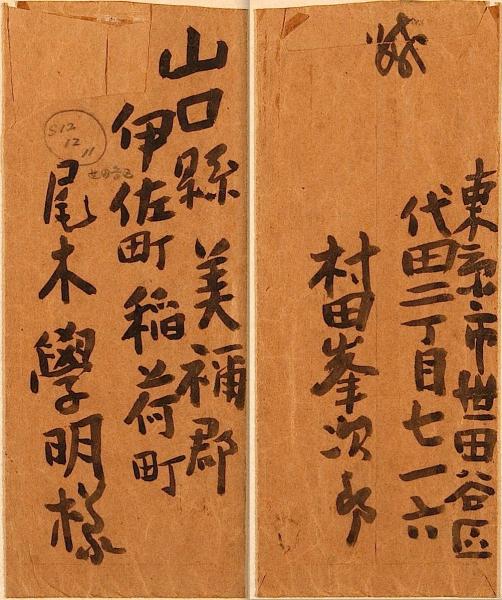 山口縣美禰郡
伊佐町稲荷町
尾木學明様
S12
12
11
東京市世田谷区
代田二丁目七一六
村田峯次郎